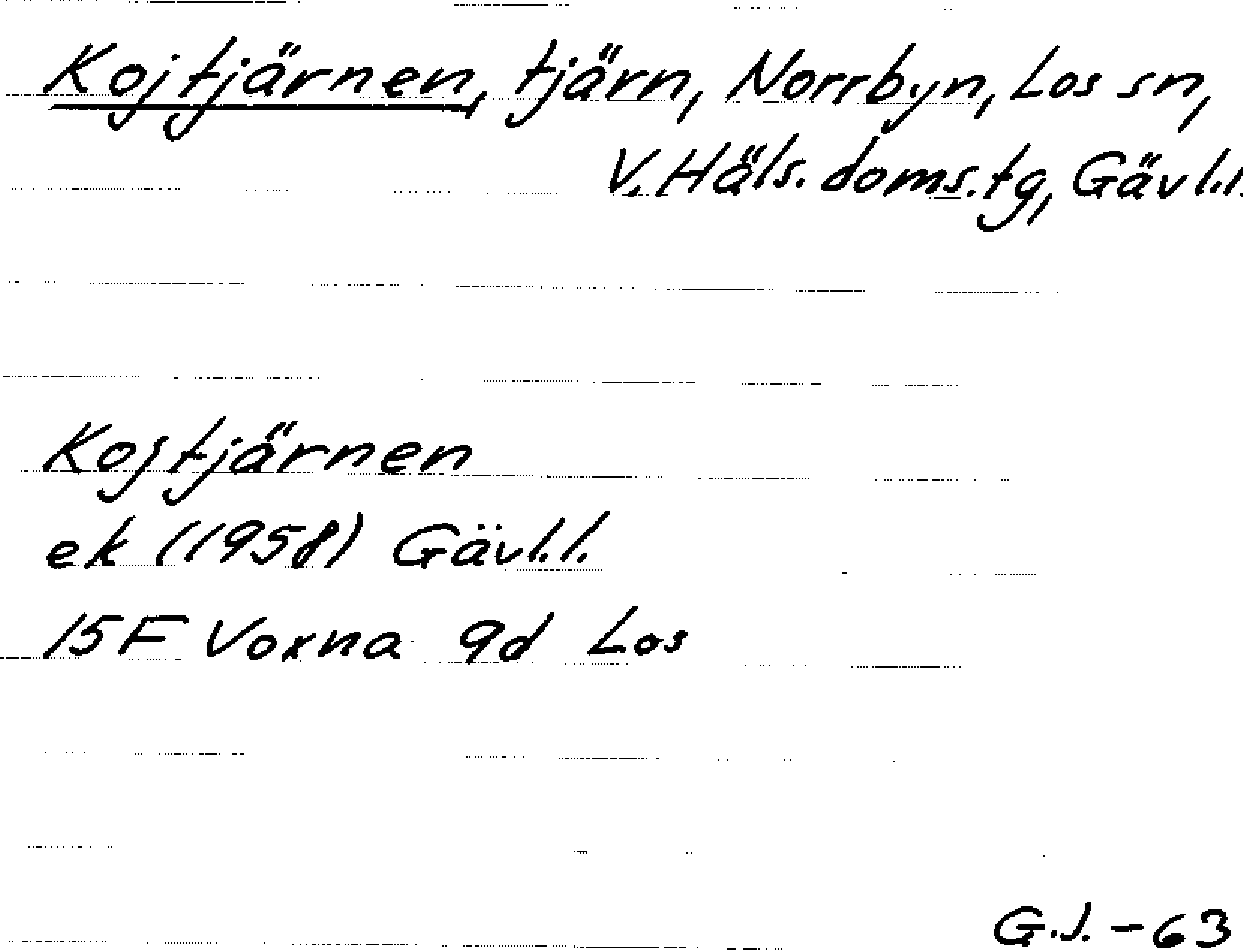 Kojtjärnen, tjärn, Norrbyn, Los sn,
V. Häls. doms.tg, Gävl.l.
Kojtjärnen
ek (1958) Gävl.l.
15F Voxna 9d Los
G.J. - 63